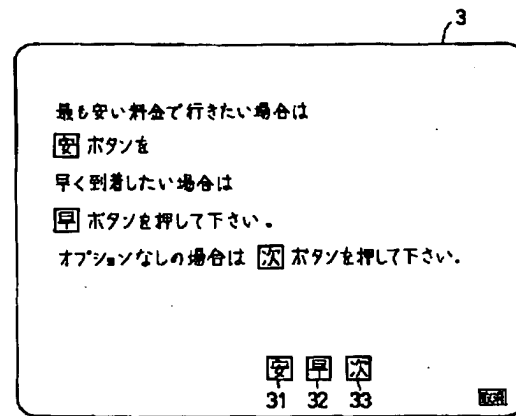 3
最も安い料金で行きたい場合は
安 ボタンを
早く到着したい場合は
早 ボタンを押して下さい。
オプションなしの場合は 次 ボタンを押して下さい.
安 早 次
31 32 33
取消